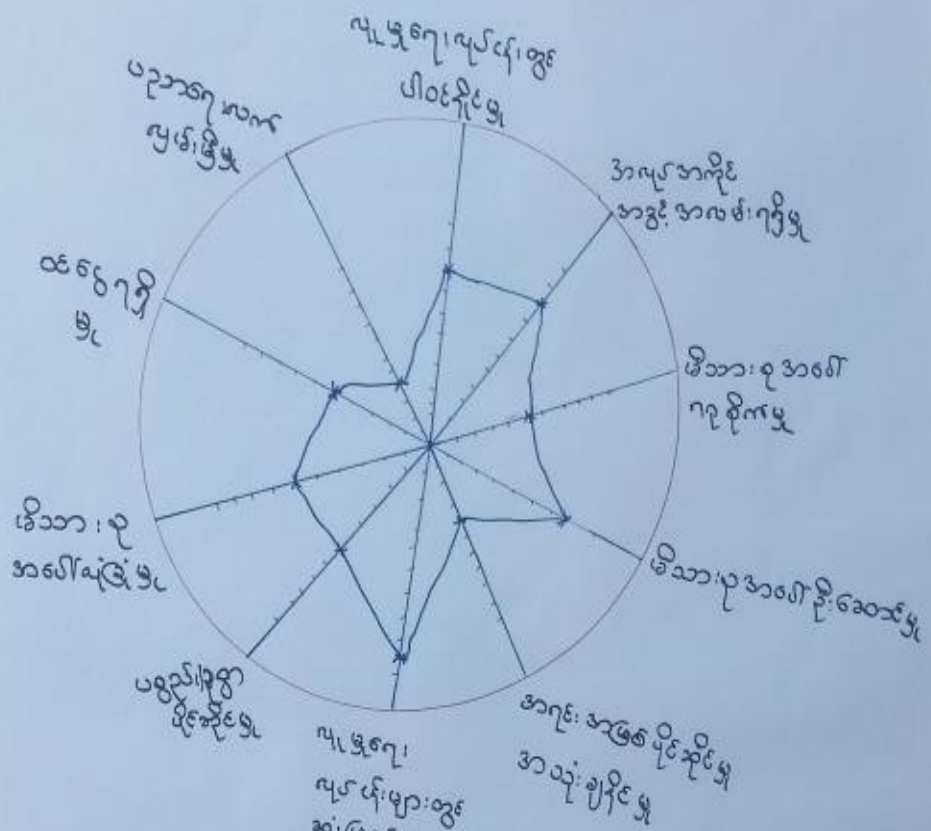 လူမှုရေးလုပ်ငန်းတွင်
ပါဝင်နိုင်မှု
အလုပ်အကိုင်
အခွင့်အလမ်းရရှိမှု
မိသားစုအပေါ်
ဂရုစိုက်မှု
မိသားစုအပေါ်ဦးဆောင်မှု
အရင်းအမြစ်ပိုင်ဆိုင်မှု
အသုံးချနိုင်မှု
လူမှုရေး
လုပ်ငန်းများတွင်
ပစ္စည်းဥစ္စာ
ပိုင်ဆိုင်မှု
မိသားစု
အပေါ်ယုံကြည်မှု
ဝင်ငွေရရှိ
မှု
ပညာရေးလက်
လှမ်းမှီမှု